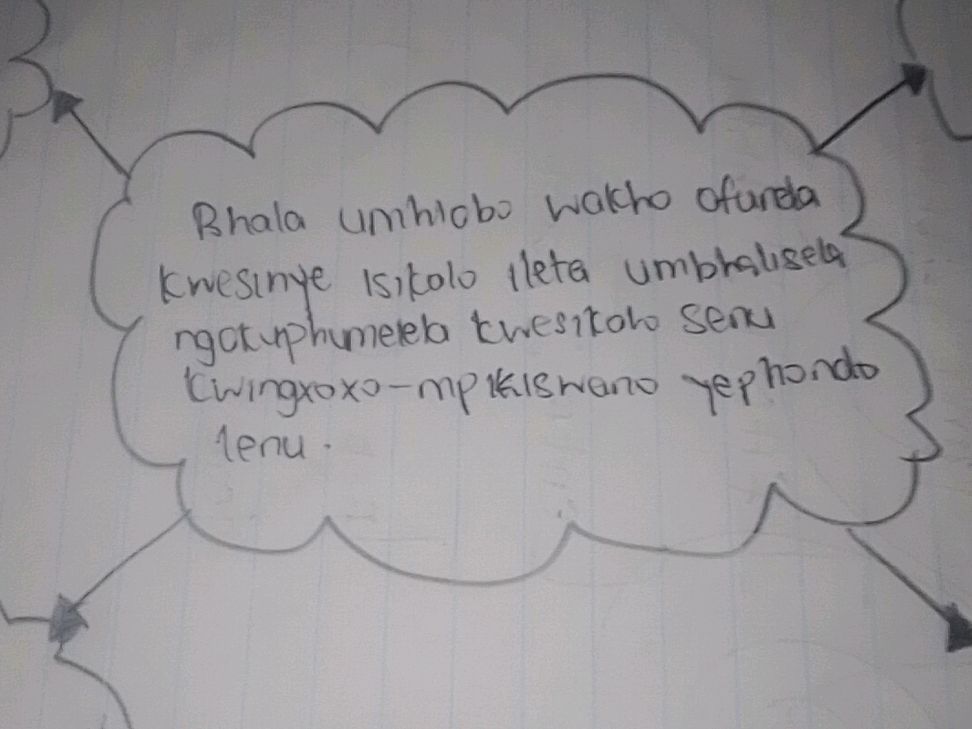 Bhala umhlobo wakho ofunda
kwesinye isikolo ileta umbhalisela
ngokuphumelela kwesikolo senu
kwingxoxo-mpikiswano yephondo
lenu.